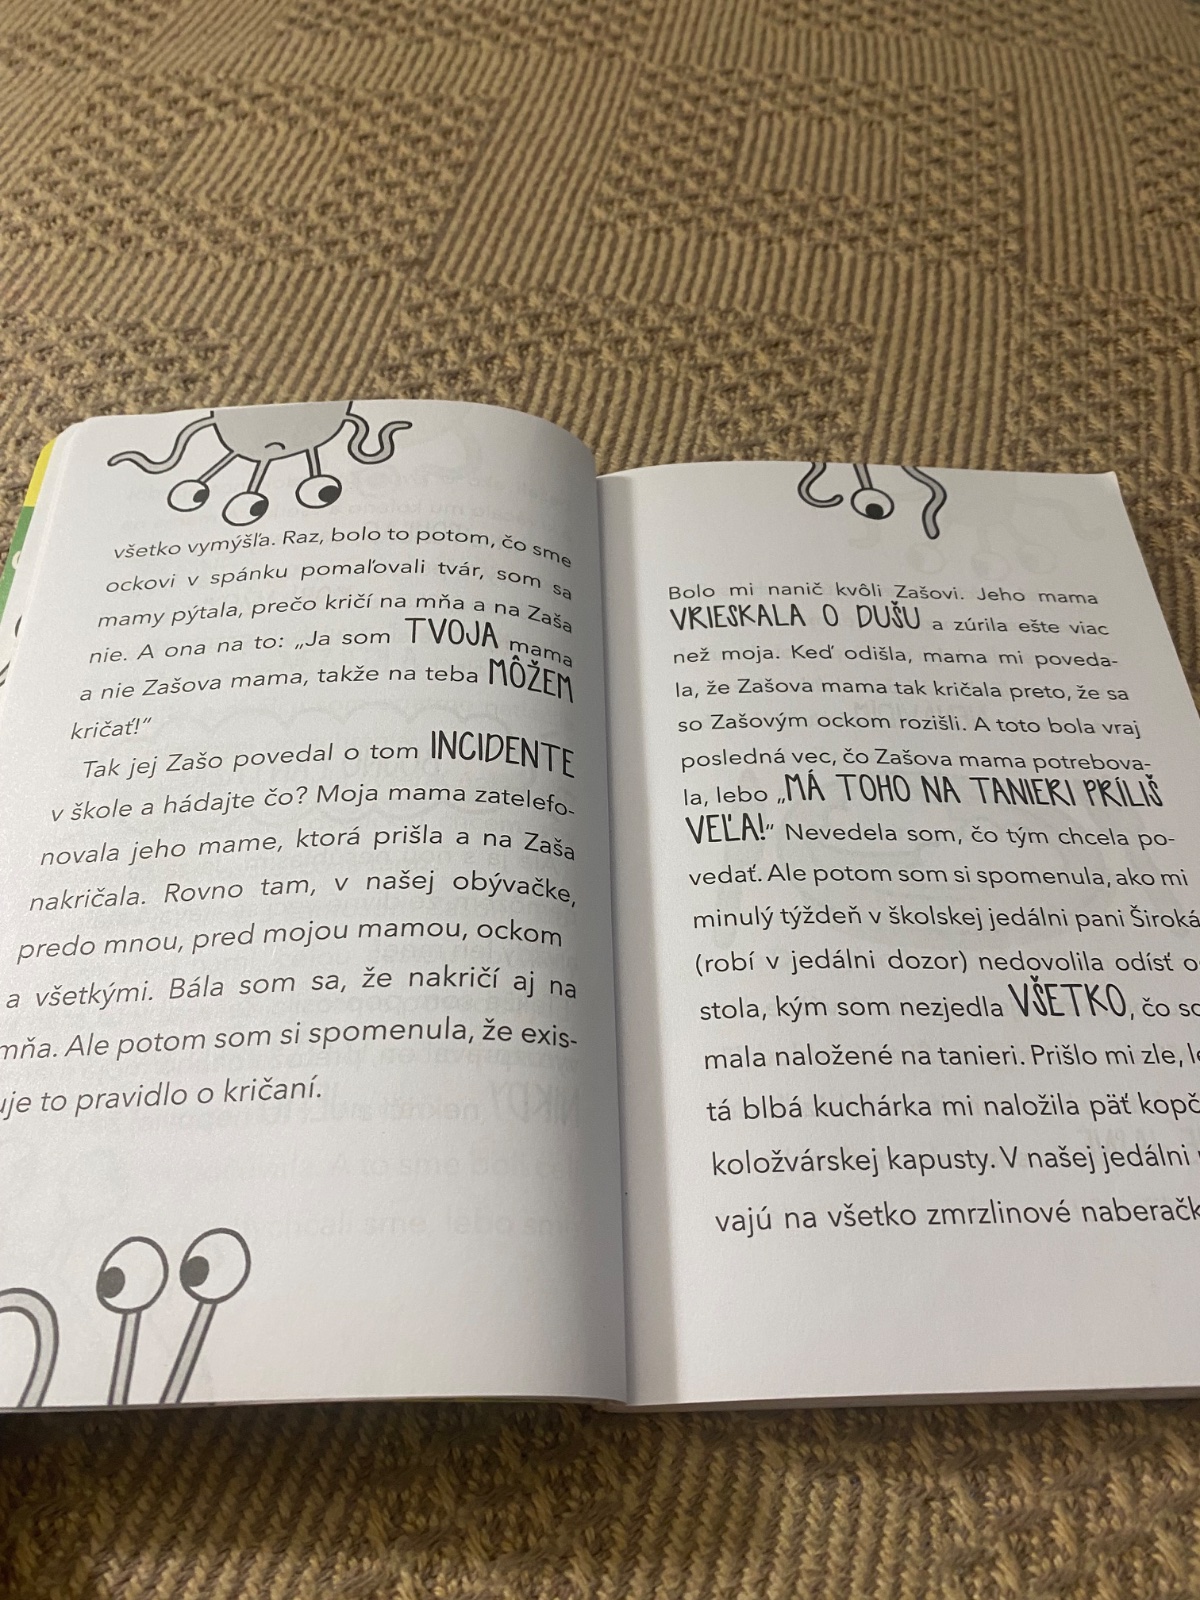 všetko vymýšľa. Raz, bolo to potom, čo sme
ockovi v spánku pomaľovali tvár, som sa
mamy pýtala, prečo kričí na mňa a na Zaša
nie. A ona na to: „Ja som TVOJA mama
a nie Zašova mama, takže na teba MÔŽEM
kričať!“
Tak jej Zašo povedal o tom INCIDENTE
v škole a hádajte čo? Moja mama zatelefo-
novala jeho mame, ktorá prišla a na Zaša
nakričala. Rovno tam, v našej obývačke,
predo mnou, pred mojou mamou, ockom
a všetkými. Bála som sa, že nakričí aj na
mňa. Ale potom som si spomenula, že exis-
uje to pravidlo o kričaní.
Bolo mi nanič kvôli Zašovi. Jeho mama
VRIESKALA O DUŠU a zúrila ešte viac
než moja. Keď odišla, mama mi poveda-
la, že Zašova mama tak kričala preto, že sa
so Zašovým ockom rozišli. A toto bola vraj
posledná vec, čo Zašova mama potrebova-
la, lebo „MÁ TOHO NA TANIERI PRÍLIŠ
VEĽA!“ Nevedela som, čo tým chcela po-
vedať. Ale potom som si spomenula, ako mi
minulý týždeň v školskej jedálni pani Široká
(robí v jedálni dozor) nedovolila odísť o
stola, kým som nezjedla VŠETKO, čo so
mala naložené na tanieri. Prišlo mi zle, le
tá blbá kuchárka mi naložila päť kopč
koložvárskej kapusty. V našej jedálni
vajú na všetko zmrzlinové naberačk